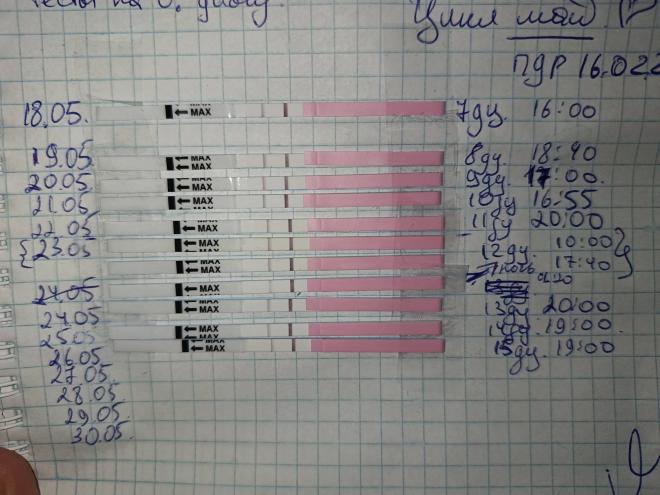 Цикл май
ПДР 16.02.2
18.05. ← MAX 7дц. 16:00
19.05 ← MAX 8дц. 18:40
20.05 ← MAX 9дц. 17:00.
21.05 ← MAX 10дц 16:55
22.05 ← MAX 11дц 20:00
{23.05 ← MAX 12дц. 10:00}
← MAX 17:40
← MAX ночь
24.05 ← MAX 13дц 20:00
25.05 ← MAX 14дц 19:00.
26.05 ← MAX 15дц. 19:00
27.05
28.05
29.05
30.05.